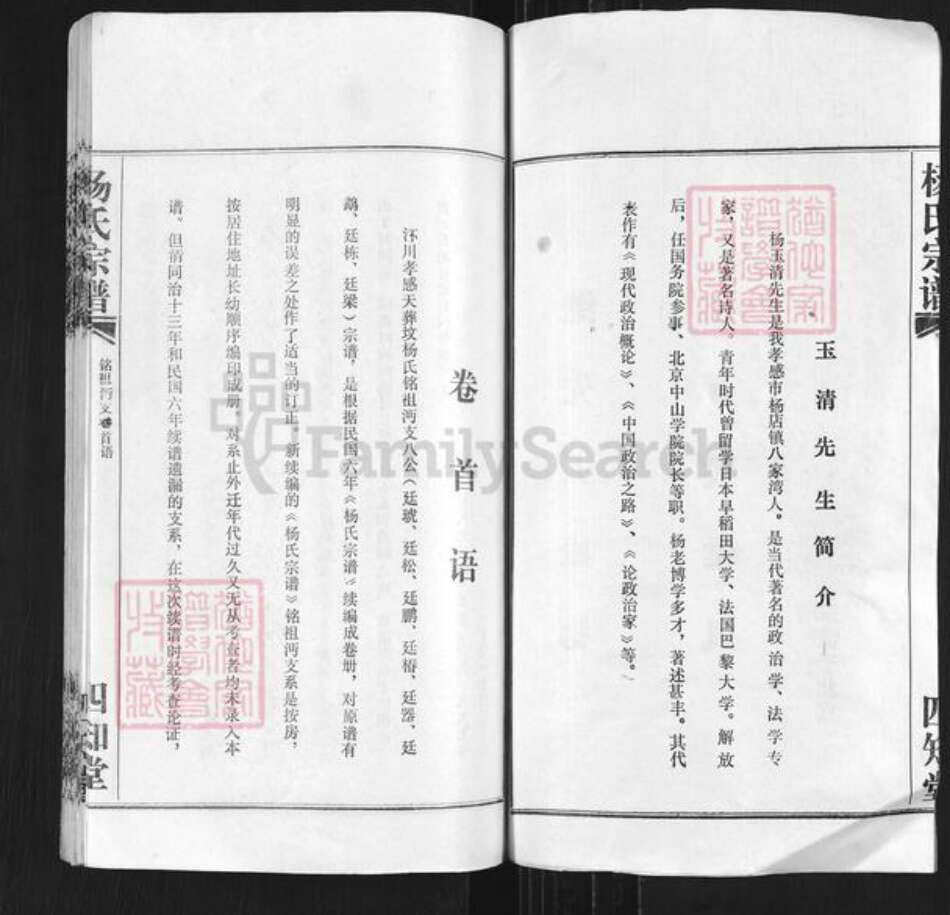 杨氏宗谱
四知堂
玉清先生简介
杨玉清先生是我孝感市杨店镇八家湾人。是当代著名的政治学、法学专
家，又是著名诗人。青年时代曾留学日本早稻田大学、法国巴黎大学。解放
后，任国务院参事、北京中山学院院长等职。杨老博学多才，著述甚丰。其代
表作有《现代政治概论》、《中国政治之路》、《论政治家》等。
卷首语
川孝感天葬坟杨氏铭祖沔支八公（廷琥、廷松、廷鹏、廷椿、廷器、廷
鹉、廷栋、廷梁）宗谱，是根据民国六年《杨氏宗谱》续编成卷册，对原谱有
明显的误差之处作了适当的订正。新续编的《杨氏宗谱》铭祖沔支系是按房，
按居住地址长幼顺序编印成册。对系止外迁年代过久又无从考查者均未录入本
谱。但前同治十三年和民国六年续谱遗漏的支系，在这次续谱时经考查论证，
杨氏宗谱
铭祖沔支 首语
四知堂
譜學會
收藏
譜學會
收藏
FamilySearch